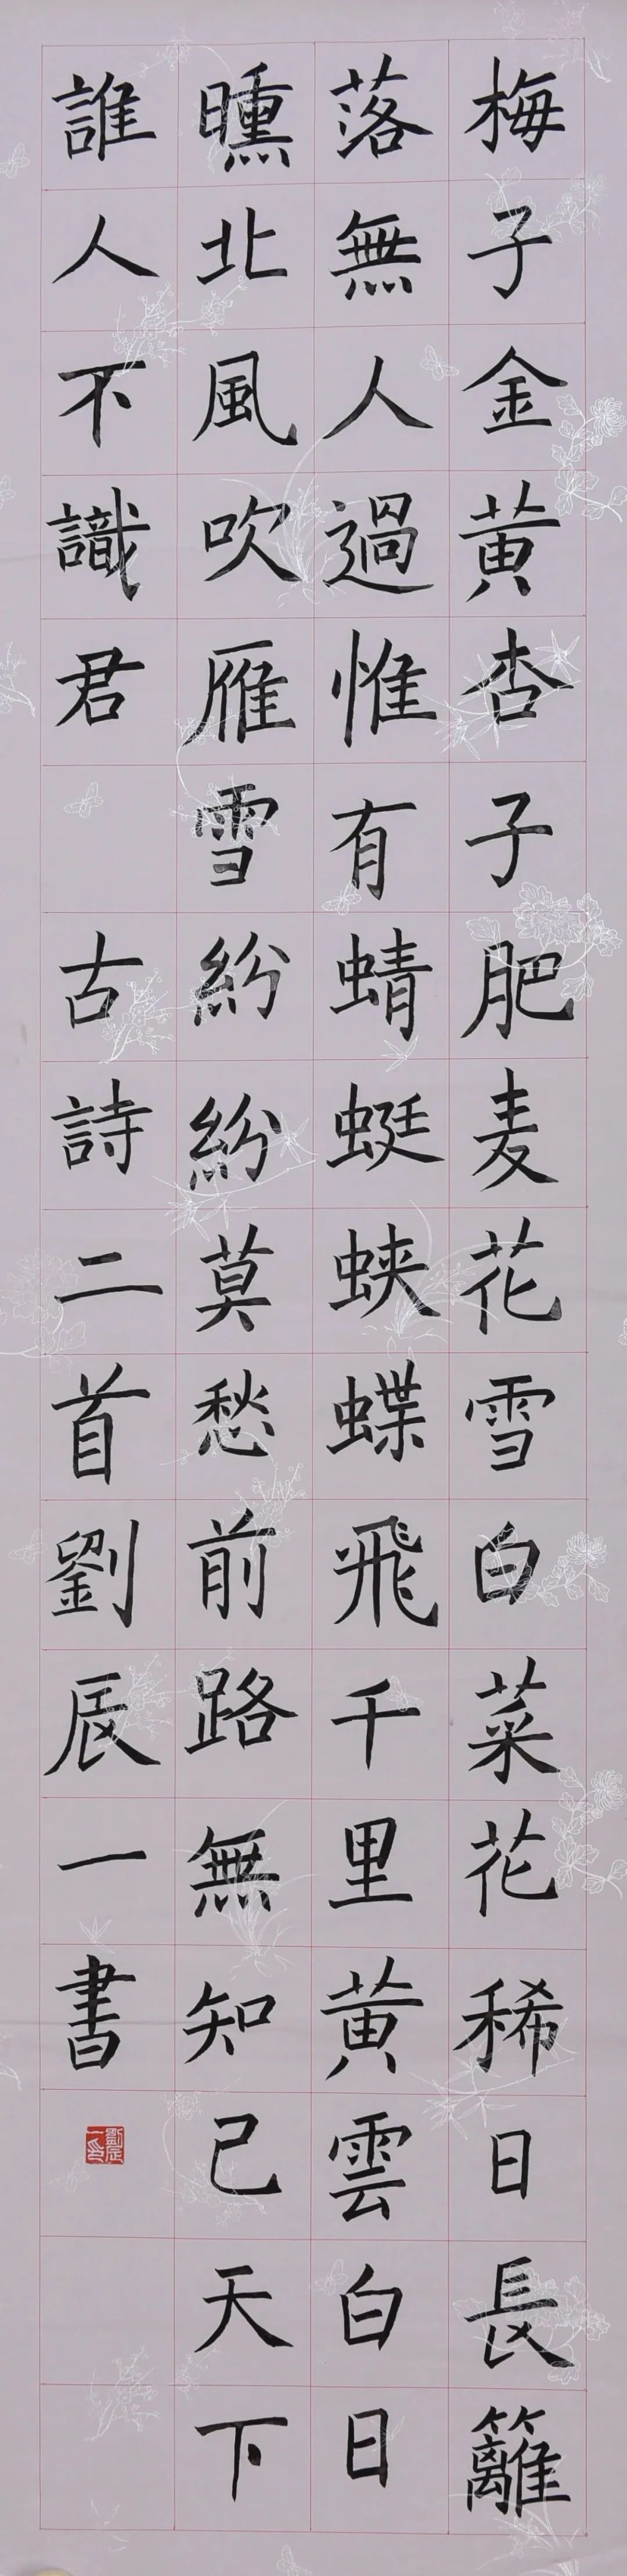 梅子金黄杏子肥麦花雪白菜花稀日長籬
落無人過惟有蜻蜓蛺蝶飛千里黄雲白日
曛北風吹雁雪紛紛莫愁前路無知己天下
誰人不識君 古詩二首劉辰一書
劉辰一印